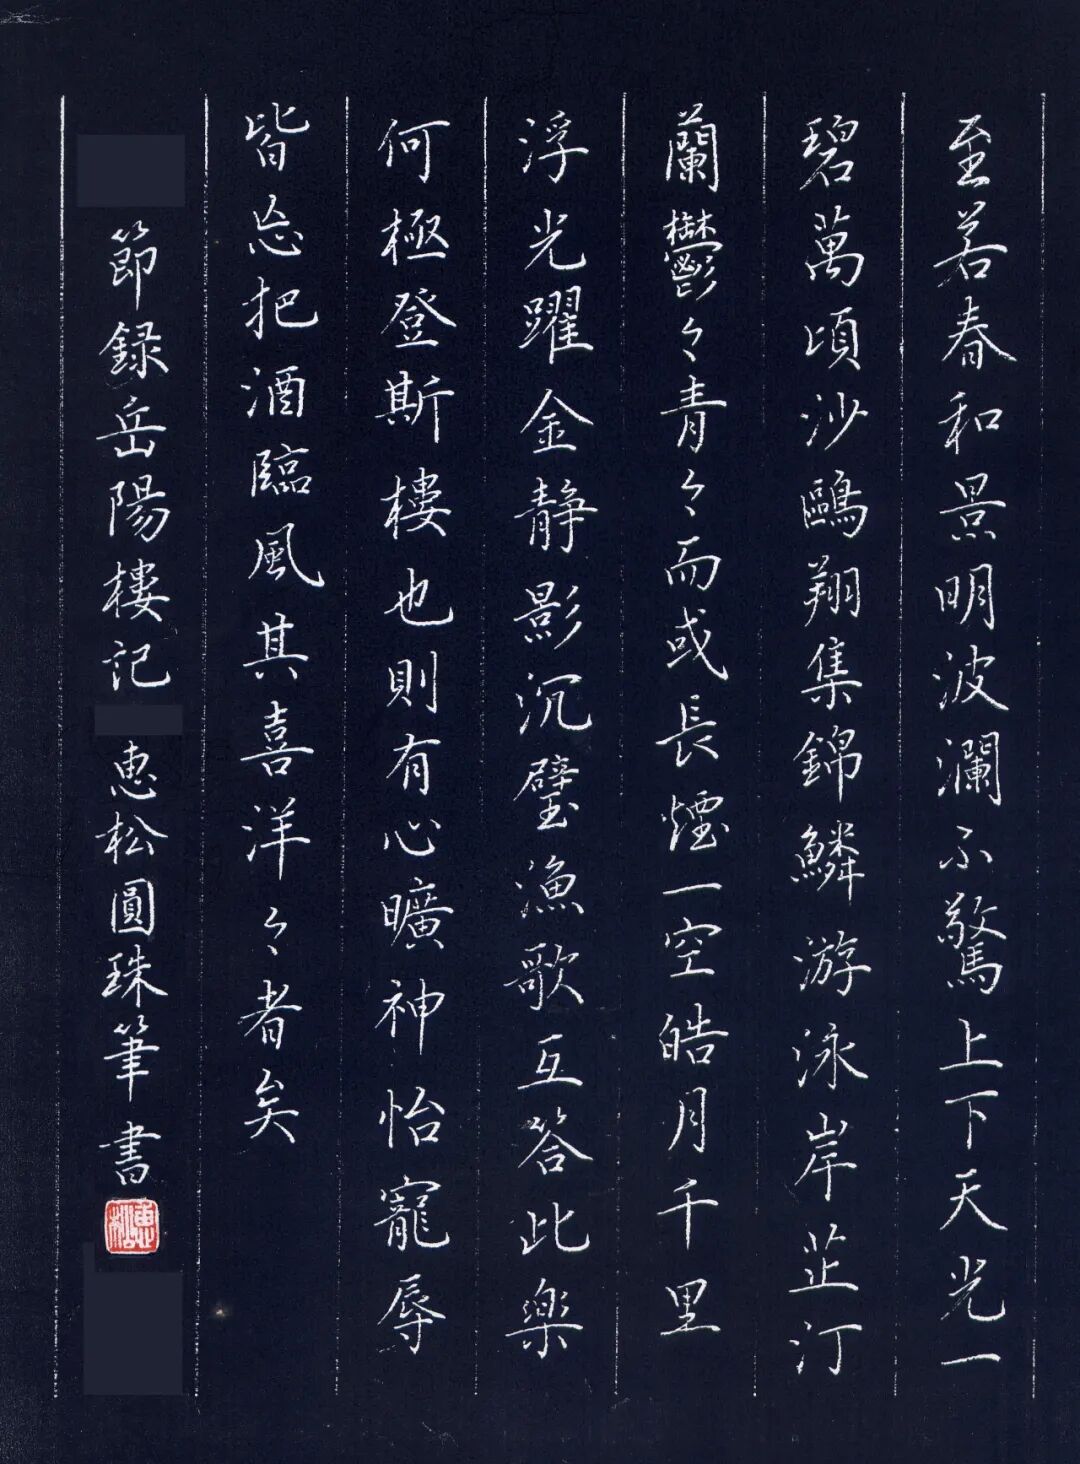 至若春和景明波瀾不驚上下天光一
碧萬頃沙鷗翔集錦鱗游泳岸芷汀
蘭鬱々青々而或長煙一空皓月千里
浮光躍金静影沉璧漁歌互答此樂
何極登斯樓也則有心曠神怡寵辱
皆忘把酒臨風其喜洋々者矣
節録岳陽樓記惠松圓珠筆書
惠松